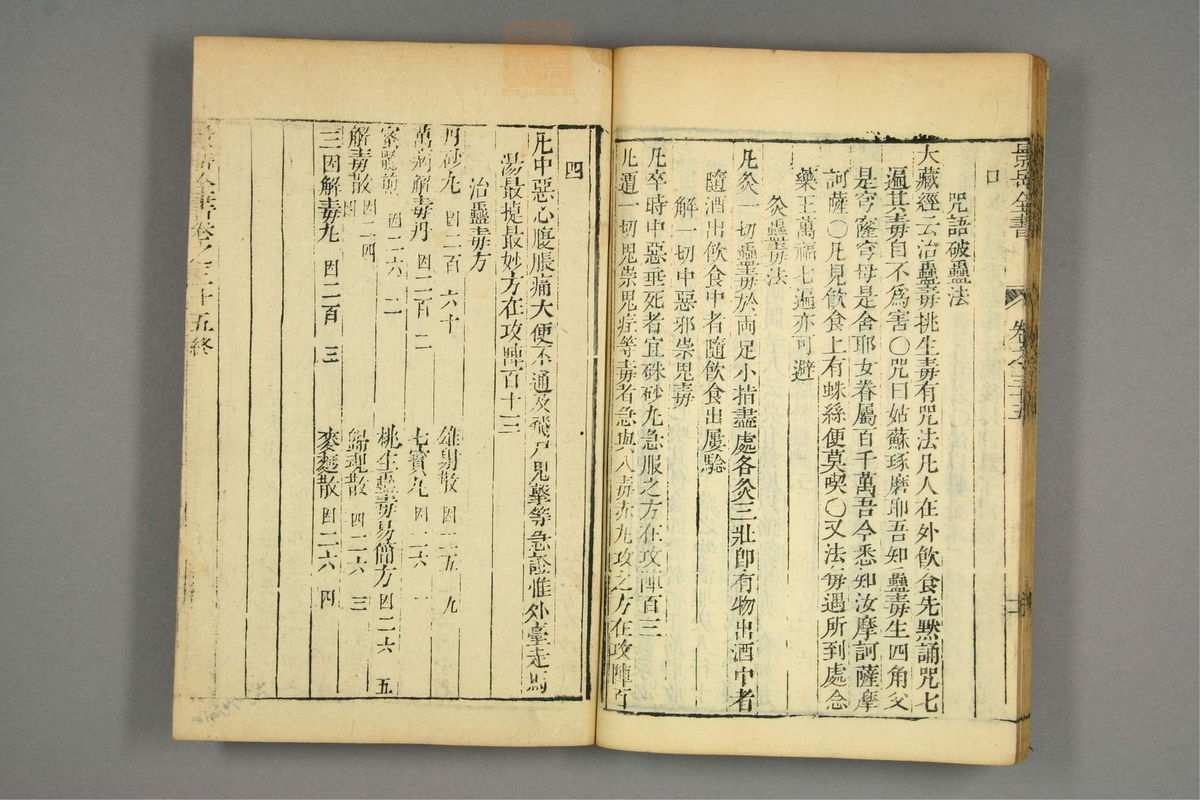 景岳全書 卷之三十五
口
咒語破蠱法
大藏經云治蠱毒挑生毒有咒法凡人在外飲食先默誦咒七
遍其毒自不爲害○咒曰姑蘇琢磨耶吾知蠱毒生四角父
是穹窿穹母是舍耶女眷屬百千萬吾今悉知汝摩訶薩摩
訶薩○凡見飲食上有蛛絲便莫喫○又法每遇所到處念
藥王萬福七遍亦可避
灸蠱毒法
凡灸一切蠱毒於兩足小指盡處各灸三壯卽有物出酒中者
隨酒出飲食中者隨飲食出屢驗
解一切中惡邪祟鬼毒
凡卒時中惡垂死者宜硃砂丸急服之方在攻陣百三
凡遭一切鬼祟鬼疰等毒者急與八毒赤丸攻之方在攻陣百
四
凡中惡心腹脹痛大便不通及飛尸鬼擊等急證惟外臺走馬
湯最捷最妙方在攻陣百十三
治蠱毒方
丹砂丸 因二百六十
雄射散 因二五九
萬病解毒丹 因二百二
七寶丸 因二六一
蜜煎 因二六二
桃生蠱毒易簡方 因二六五
解毒散 因二四四
歸魂散 因二六三
三因解毒丸 因二百三
麥麵散 因二六四
景岳全書卷之三十五終